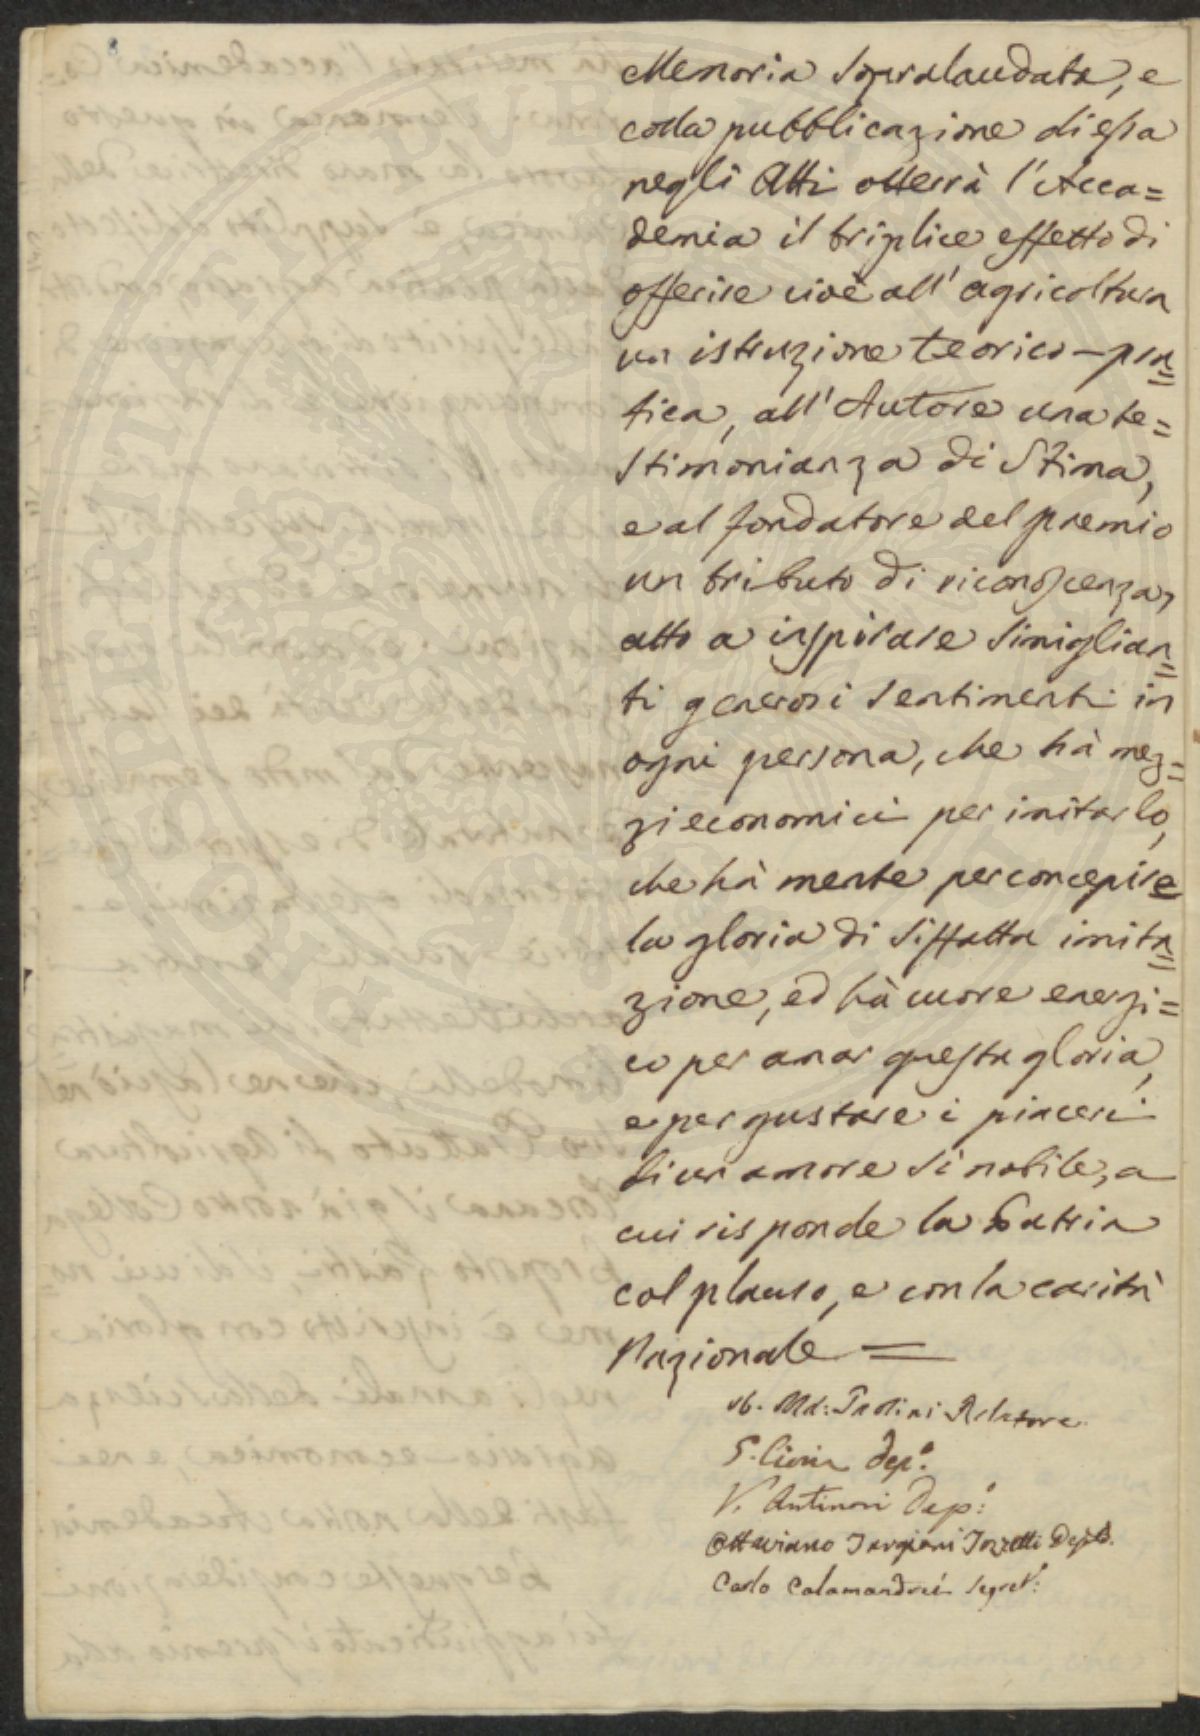 Memoria Sopralaudata, e
colla pubblicazione di essa
negli Atti otterrà l'Acca=
demia il triplice effetto di
offerire cioè all'agricoltura
un istruzione teorico-pra=
tica, all'Autore una te=
stimonianza di Stima,
e al fondatore del premio
un tributo di riconoscenza,
atto a inspirare simiglian=
ti generosi sentimenti in
ogni persona, che hà mez=
zi economici per imitarlo,
che hà mente per concepire
la gloria di siffatta imita=
zione, ed hà cuore energi=
co per amar questa gloria,
e per gustare i piaceri
di un amore sì nobile, a
cui risponde la Patria
col plauso, e con la carità
Nazionale =
Md: Paolini Relatore
Dep.º
V. Antinori Dep:º
Ottaviano Targioni Tozzetti Depto.
Carlo Calamandrei Segret:º
PUBLI
PROSPERITATI